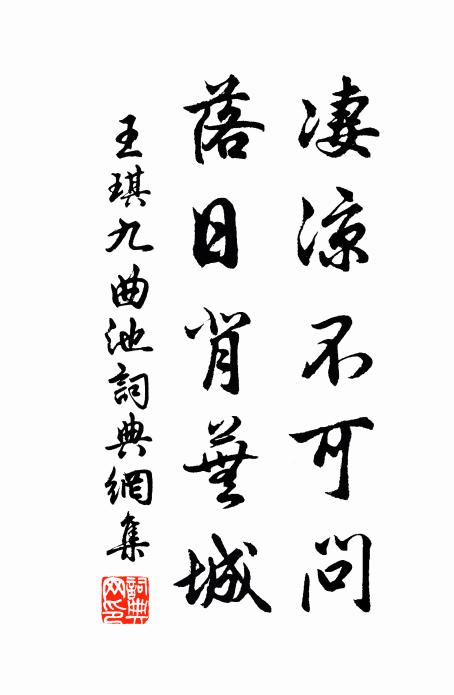 凄涼不可問
落日背蕪城
王琪九曲池詞典網集
詞典
网印